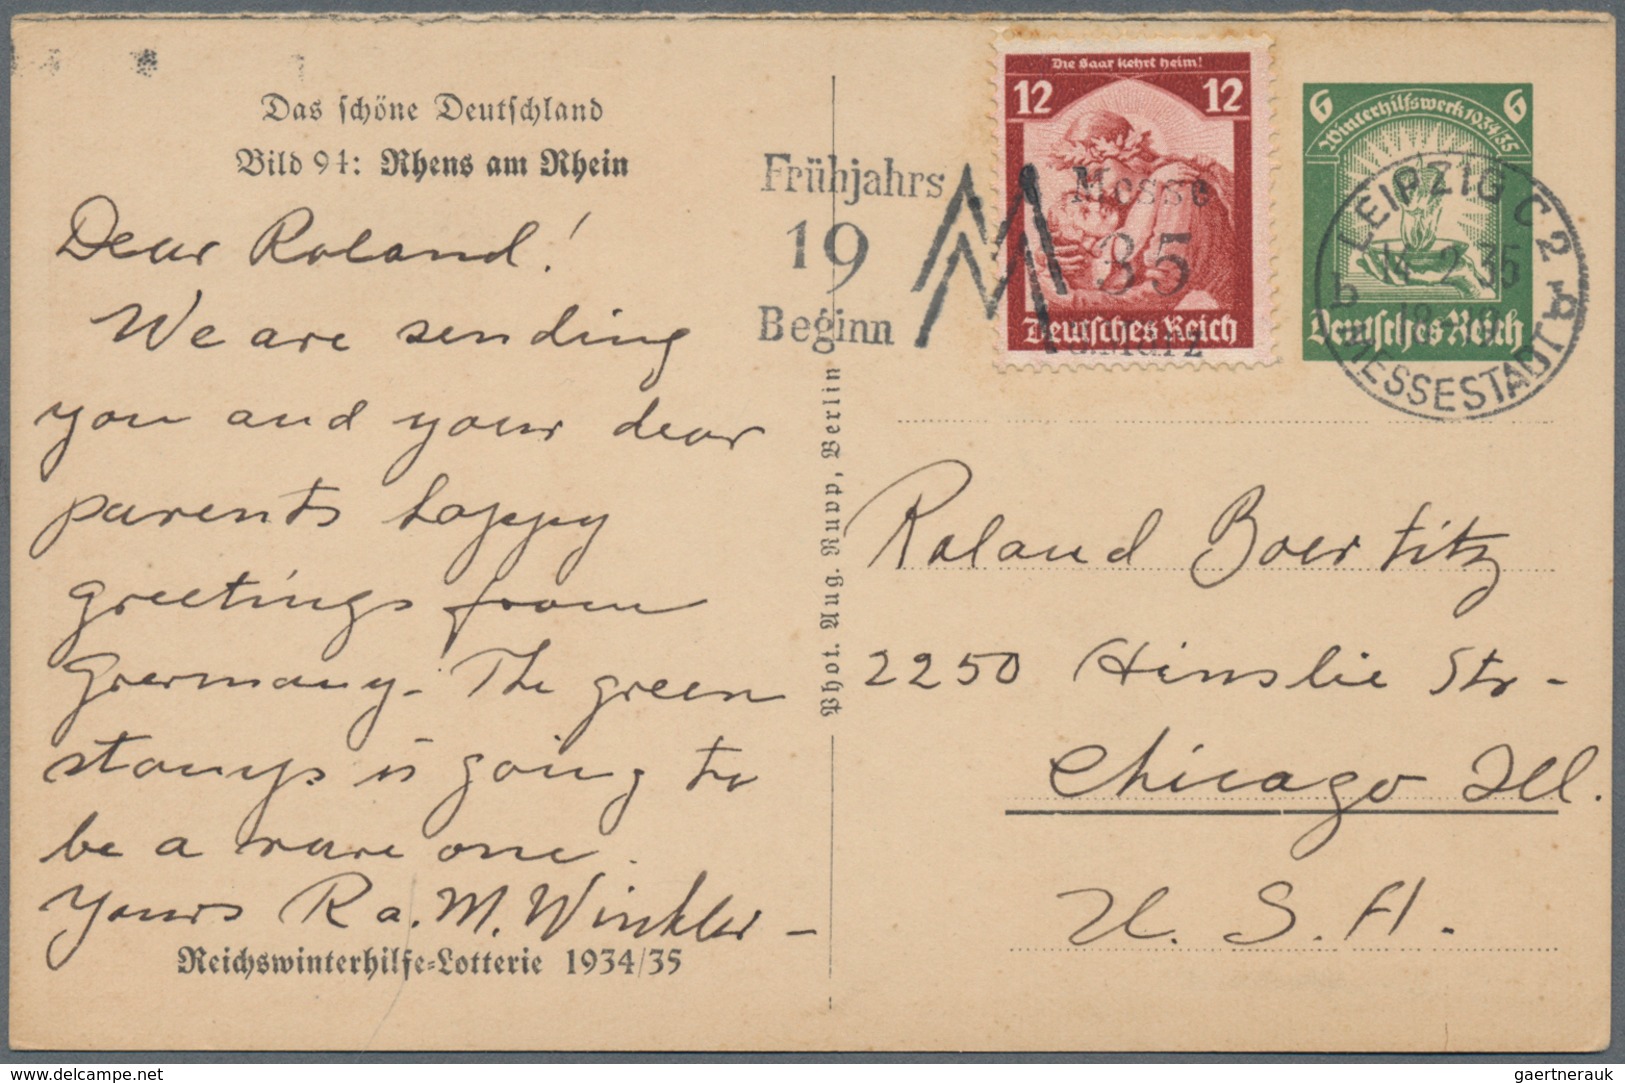 Das schöne Deutschland
Bild 94: Rhens am Rhein
Dear Roland!
We are sending
you and your dear
parents happy
greetings from
Germany. The green
stamps is going to
be a rare one.
Yours R a. M. Winkler
Reichswinterhilfe-Lotterie 1934/35
Phot. Aug. Rupp, Berlin
Frühjahrs Messe
19 M 35
Beginn 3. März
Die Saar kehrt heim!
12 12
Deutsches Reich
6 6
Winterhilfswerk 1934/35
Deutsches Reich
LEIPZIG C 2
b 14.2.35
MESSESTADT
Roland Boertitz
2250 Hinslie Str-
Chicago Ill.
U. S. A.
www.delcampe.net
gaertnerauk